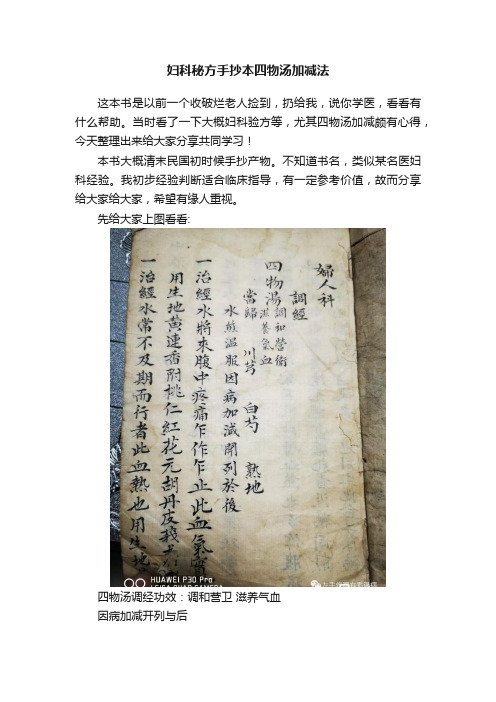 妇科秘方手抄本四物汤加减法
这本书是以前一个收破烂老人捡到，扔给我，说你学医，看看有
什么帮助。当时看了一下大概妇科验方等，尤其四物汤加减颇有心得，
今天整理出来给大家分享共同学习！
本书大概清末民国初时候手抄产物。不知道书名，类似某名医妇
科经验。我初步经验判断适合临床指导，有一定参考价值，故而分享
给大家给大家，希望有缘人重视。
先给大家上图看看:
婦人科
調經
四物湯
調和營衛
滋養氣血
當歸 川芎 白芍 熟地
水煎溫服因病加減開列於後
一治經水將來腹中疼痛乍作乍止此血氣實
用生地黃連香附桃仁紅花元胡丹皮莪朮
一治經水常不及期而行者此血熱也用生地
HUAWEI P30 Pro
四物汤调经功效：调和营卫 滋养气血
因病加减开列与后